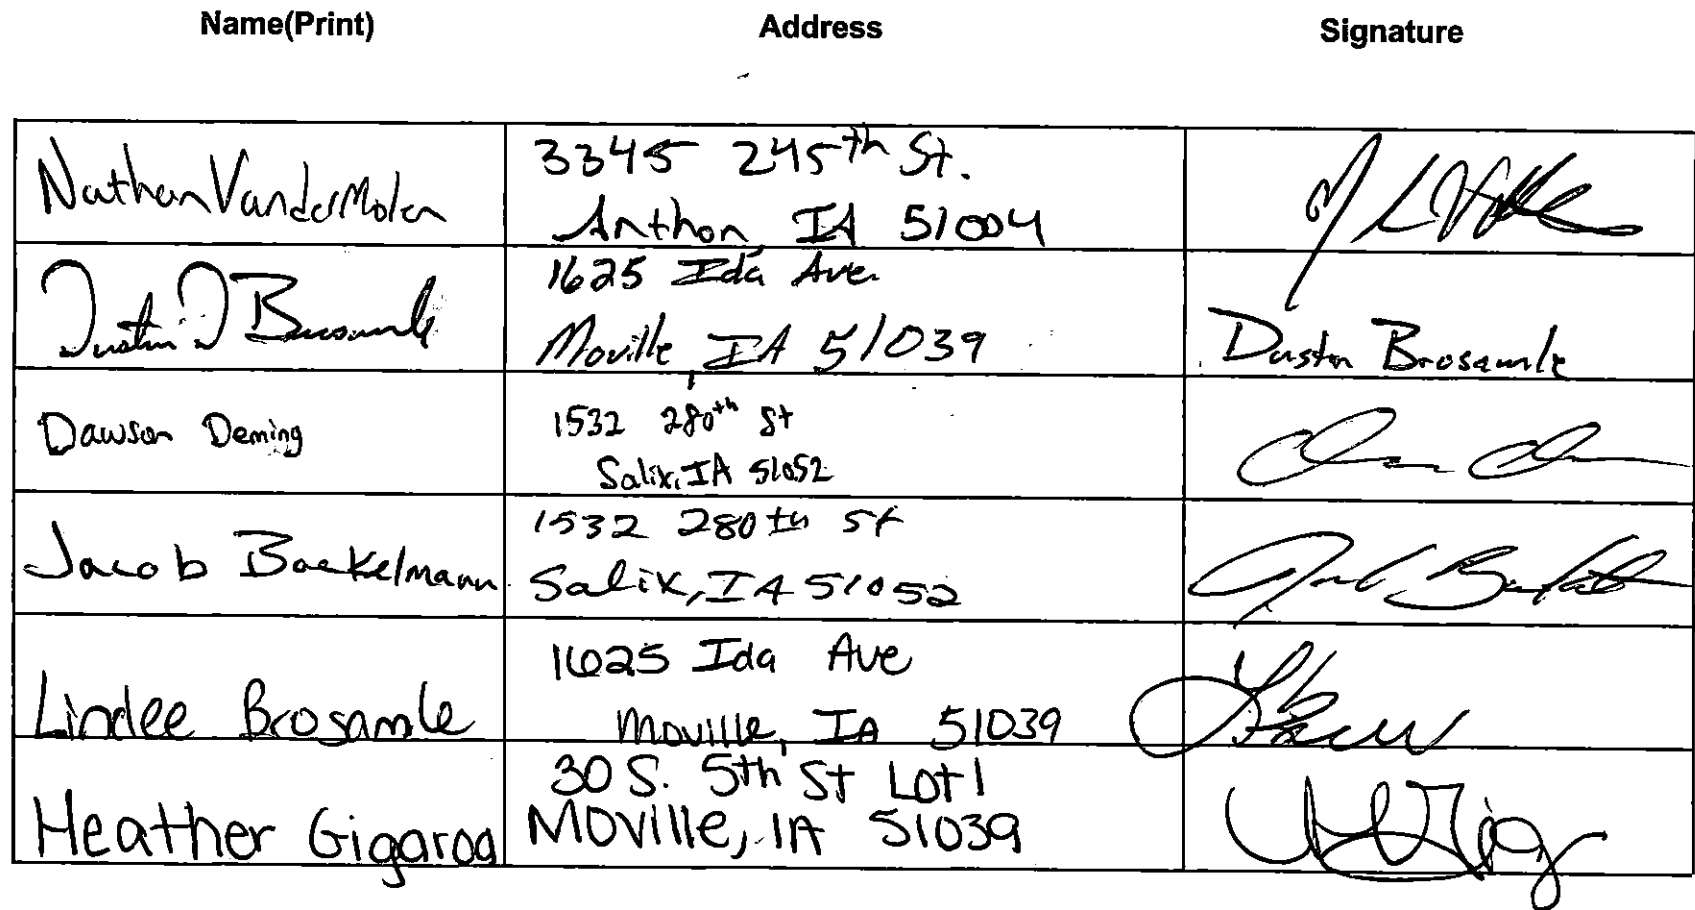 Name(Print) Address Signature
Nathan VanderMolen
3345 245th St.
Anthon, IA 51004
Dustin J Brosamle
1625 Ida Ave
Moville, IA 51039
Dustin Brosamle
Dawson Deming
1532 280th St
Salix, IA 51052
Jacob Boekelmann
1532 280th St
Salix, IA 51052
Lindee Brosamle
1625 Ida Ave
Moville, IA 51039
Heather Gigaroa
30 S. 5th St Lot 1
Moville, IA 51039